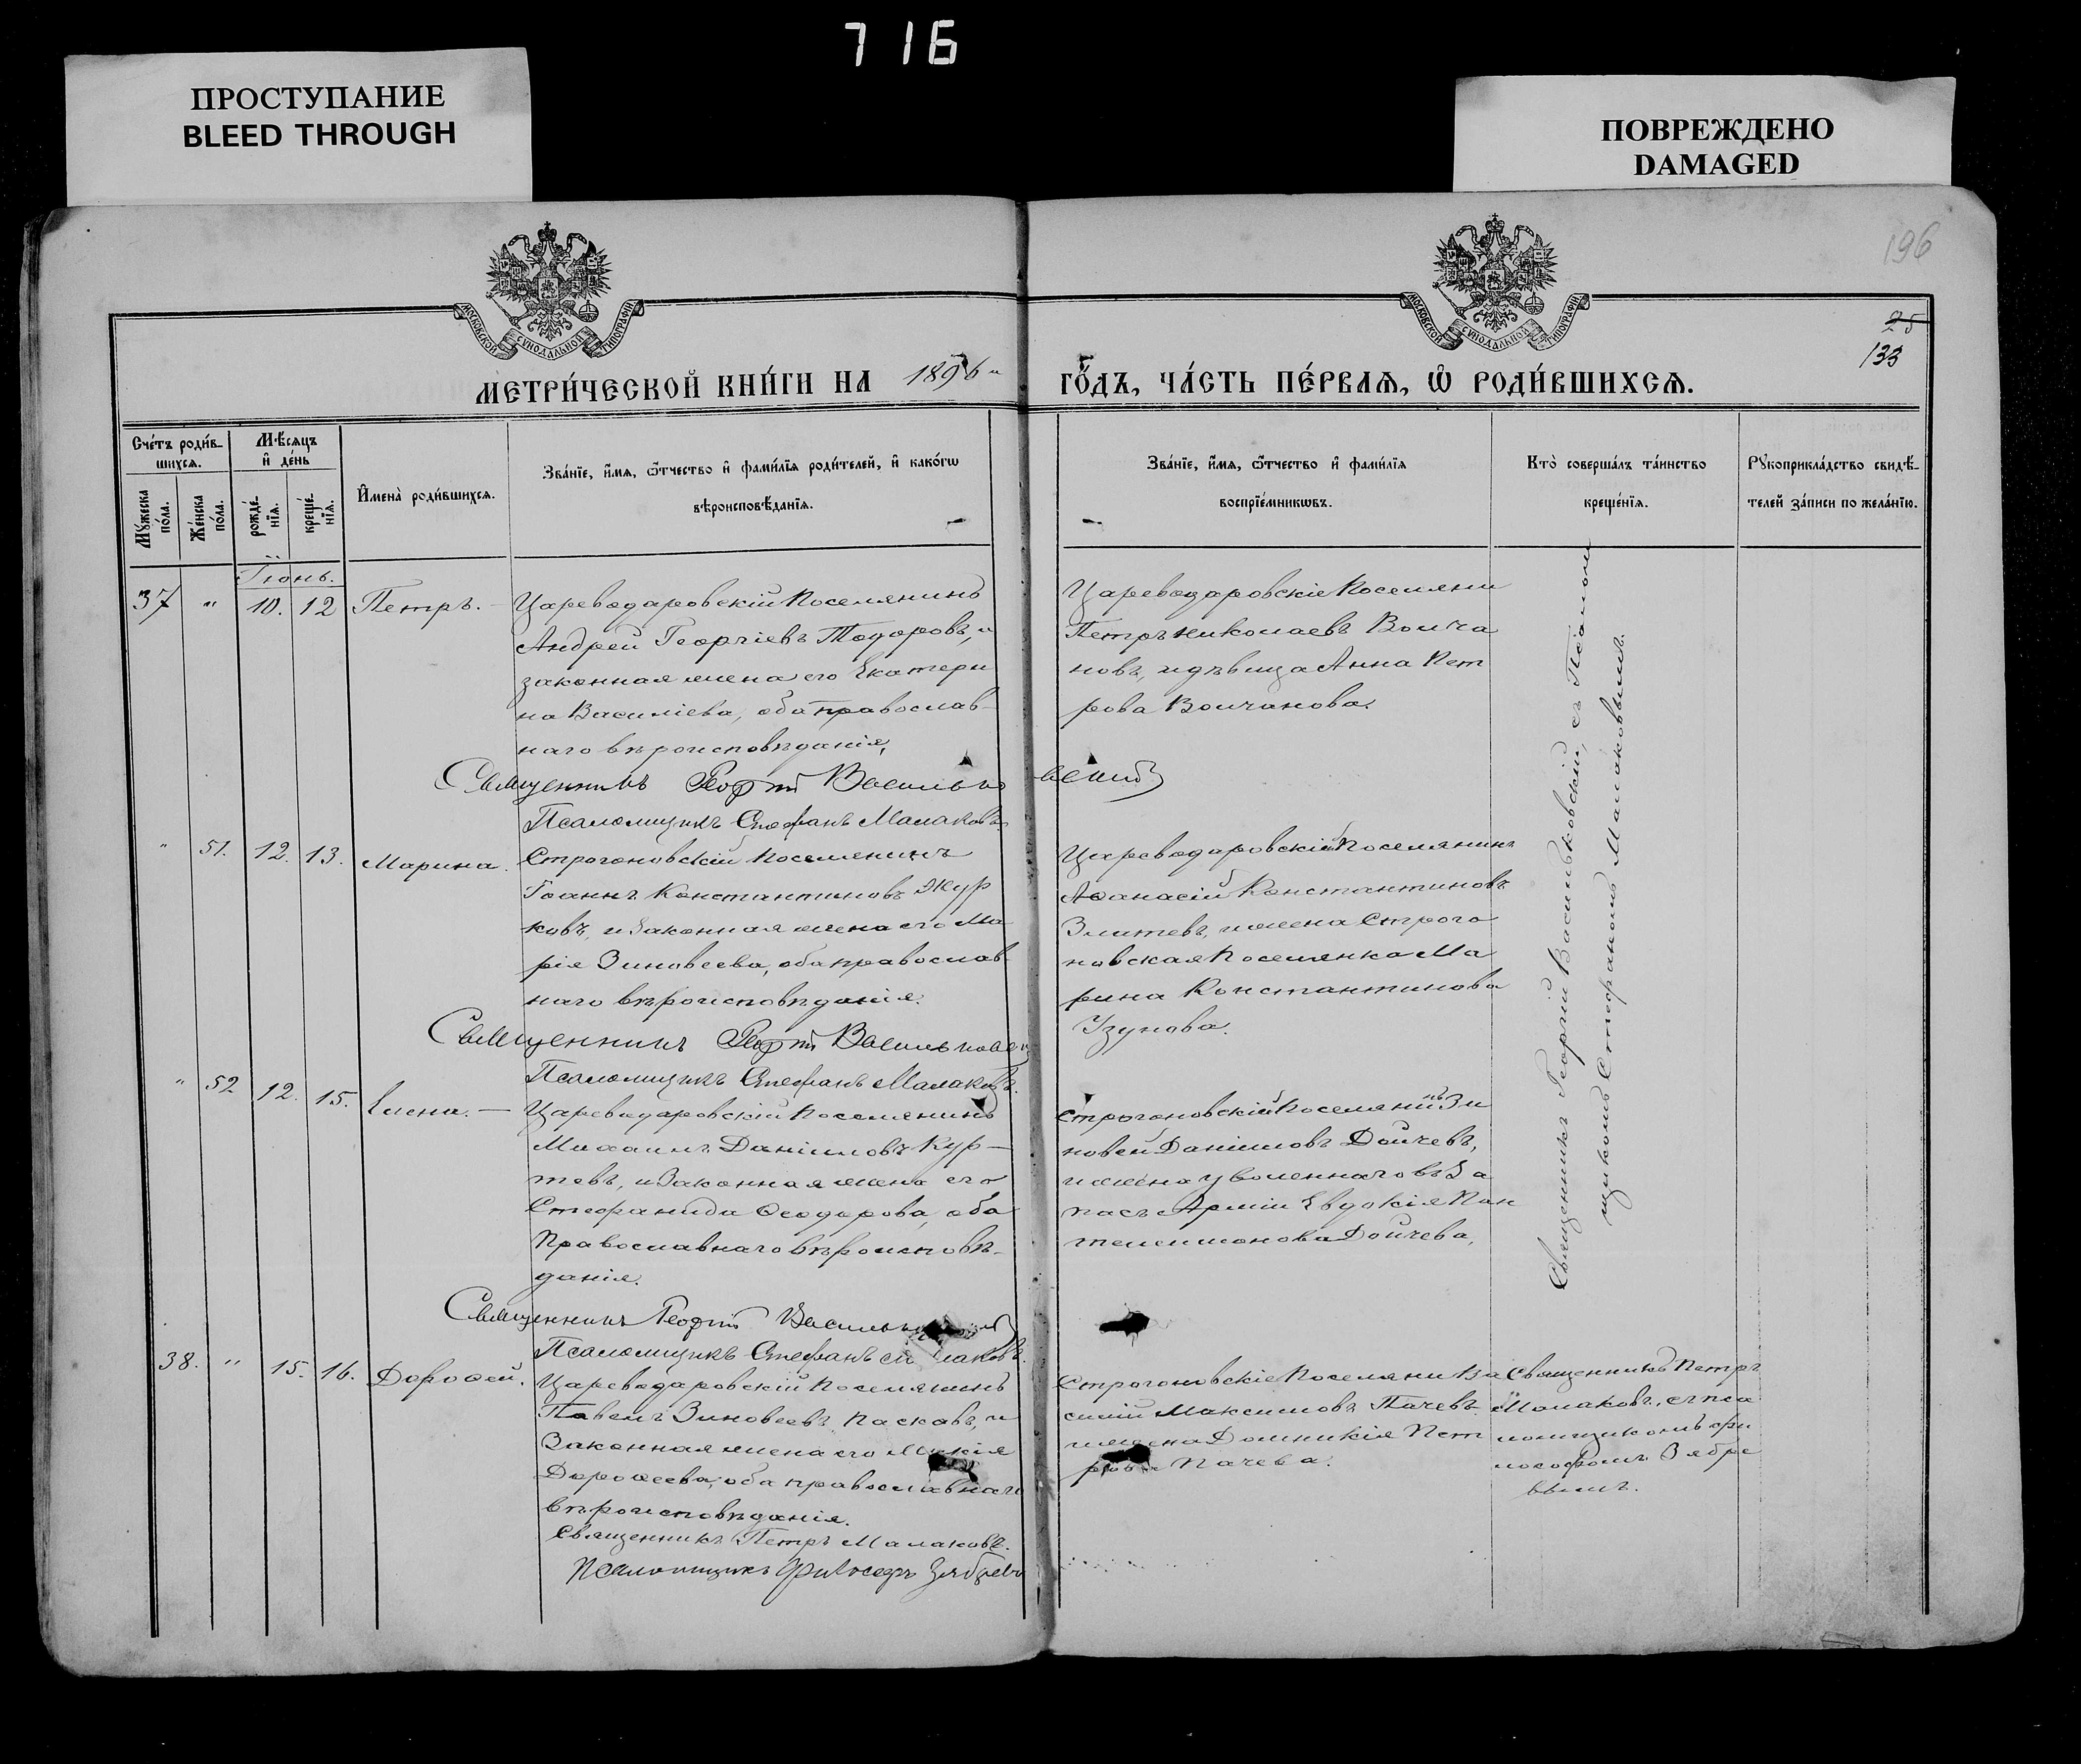 716
ПРОСТУПАНИЕ
BLEED THROUGH
ПОВРЕЖДЕНО
DAMAGED
196
МОСКОВСКОЙ СѴНОДАЛЬНОЙ ТИПОГРАФІИ
МОСКОВСКОЙ СѴНОДАЛЬНОЙ ТИПОГРАФІИ
25
133
МЕТРИ́ЧЕСКОЙ КНИ́ГИ НА 1896 го́дъ, ча́сть пе́рваѧ, ѡ҆ роди́вшихсѧ.
Сче́тъ роди́в-
шихсѧ.
Мѣ́сѧцъ
и҆ де́нь
Мꙋ́жеска
по́ла.
Же́нска
по́ла.
рожде́-
нїѧ.
креще́-
нїѧ.
И҆мена̀ роди́вшихсѧ.
Зва́нїе, и҆́мѧ, ѻ҆́тчество и҆ фами́лїѧ роди́телей, и҆ како́гѡ
вѣроисповѣ́данїѧ.
Зва́нїе, и҆́мѧ, ѻ҆́тчество и҆ фами́лїѧ
воспрїе́мникѡвъ.
Кто̀ соверша́лъ та́инство
креще́нїѧ.
Рꙋкоприкла́дство свидѣ́-
телей за́писи по жела́нїю.
Іюнь.
37 " 10. 12 Петръ. — Цареводаровскій Поселянинъ
Андрей Георгіевъ Тодоровъ, и
законная жена его Екатери
на Василіева, оба православ-
наго вѣроисповѣданія,
Священникъ Георгій Васильковскій
Псаломщикъ Стефанъ Малаковъ.
Цареводаровскіе Поселяни
Петръ Николаевъ Волча
новъ, и дѣвица Анна Пет
рова Волчанова.
" 51. 12. 13. Марина. Строгоновскій Поселянинъ
Іоаннъ Константиновъ Жур
ковъ, и Законная жена его Ма
рія Зиновеева, оба православ
наго вѣроисповѣданія.
Священникъ Георгій Васильковскій
Псаломщикъ Стефанъ Малаковъ.
Цареводаровскій Поселянинъ
Аѳанасій Константиновъ
Златевъ, и жена Строго
новская Поселянка Ма
рина Константинова
Узунова.
" 52 12. 15. Елена. — Цареводаровскій Поселянинъ
Михаилъ Даніиловъ Кур-
тевъ, и Законная жена его
Стефанида Ѳеодорова, оба
Православнаго вѣроисповѣ-
данія.
Священникъ Георгій
Псаломщикъ Стефанъ
Строгоновскій Поселянинъ Зи
новей Даніиловъ Дойчевъ,
и жена уволеннаго въ За
пасъ Арміи Евдокія Пан
телеимонова Дойчева,
Священникъ Георгій Васильковскій, съ Псалом
щикомъ Стефаномъ Малаковымъ.
38. " 15. 16. Дороѳей. Цареводаровскій Поселянинъ
Павелъ Зиновеевъ Пасковъ, и
Законная жена его
Дороѳеева, оба православнаго
вѣроисповѣданія.
Священникъ Петръ Малаковъ.
Псаломщикъ Философъ Зябревъ
Строгоновскіе Поселяни Ва
силій Максимовъ Пачевъ
и жена Домникія Пет
рова Пачева.
Священникъ Петръ
Малаковъ, съ пса
ломщикомъ Фи
лософомъ Зябре
вымъ.